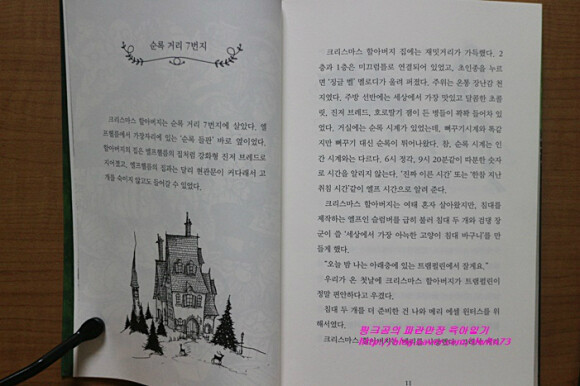 순록 거리 7번지
크리스마스 할아버지는 순록 거리 7번지에 살았다. 엘
프헬름에서 가장자리에 있는 '순록 들판' 바로 옆이었다.
할아버지의 집은 엘프헬름의 집처럼 강화형 진저 브레드로
지어졌고, 엘프헬름의 집과는 달리 현관문이 커다래서 고
개를 숙이지 않고도 들어갈 수 있었다.
크리스마스 할아버지 집에는 재밋거리가 가득했다. 2
층과 1층은 미끄럼틀로 연결되어 있었고, 초인종을 누르
면 '징글 벨' 멜로디가 울려 퍼졌다. 주위는 온통 장난감 천
지였다. 주방 선반에는 세상에서 가장 맛있고 달콤한 초콜
릿, 진저 브레드, 호로딸기 잼이 든 병들이 꽉꽉 들어차 있
었다. 거실에는 순록 시계가 있었는데, 뻐꾸기시계와 똑같
지만 뻐꾸기 대신 순록이 튀어나왔다. 참, 순록 시계는 인
간 시계와는 다르다. 6시 정각, 9시 20분같이 따분한 숫자
로 시간을 알리지 않는다. '진짜 이른 시간' 또는 '한참 지난
취침 시간'같이 엘프 시간으로 알려 준다.
크리스마스 할아버지는 여태 혼자 살아왔지만, 침대를
제작하는 엘프인 슬럼버를 급히 불러 침대 두 개와 검댕 장
군이 쓸 '세상에서 가장 아늑한 고양이 침대 바구니'를 만
들게 했다.
"오늘 밤 나는 아래층에 있는 트램펄린에서 잘게요."
우리가 온 첫날에 크리스마스 할아버지가 트램펄린이
정말 편안하다고 우겼다.
침대 두 개를 더 준비한 건 나와 메리 에설 윈터스를 위
해서였다.
크리스마스 할아버지는
핑크곰의 파란만장 육아일기
11